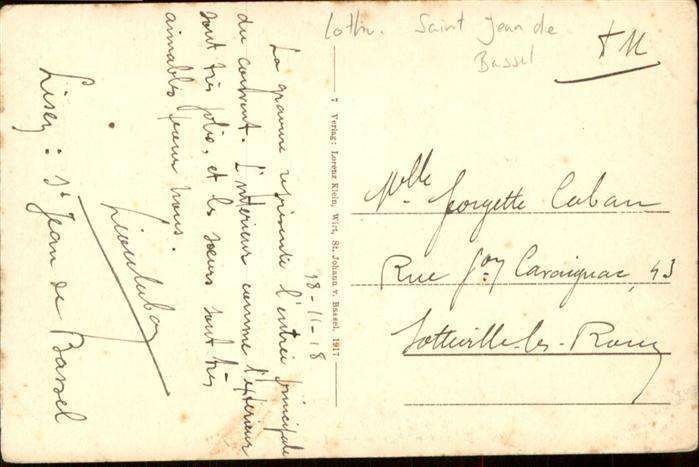 Lothr. Saint Jean de
Bassel
F M
18-11-18
La gravure représente l'entrée principale
du couvent. L'intérieur comme l'extérieur
sont très jolis, et les sœurs sont très
aimables pour nous.
Lisez : St Jean de Bassel
7 Verlag: Lorenz Klein, Wirt, St. Johann v. Bassel. 1917
Mlle Georgette Caban
Rue Gal Cavaignac, 43
Sotteville-les-Rouen